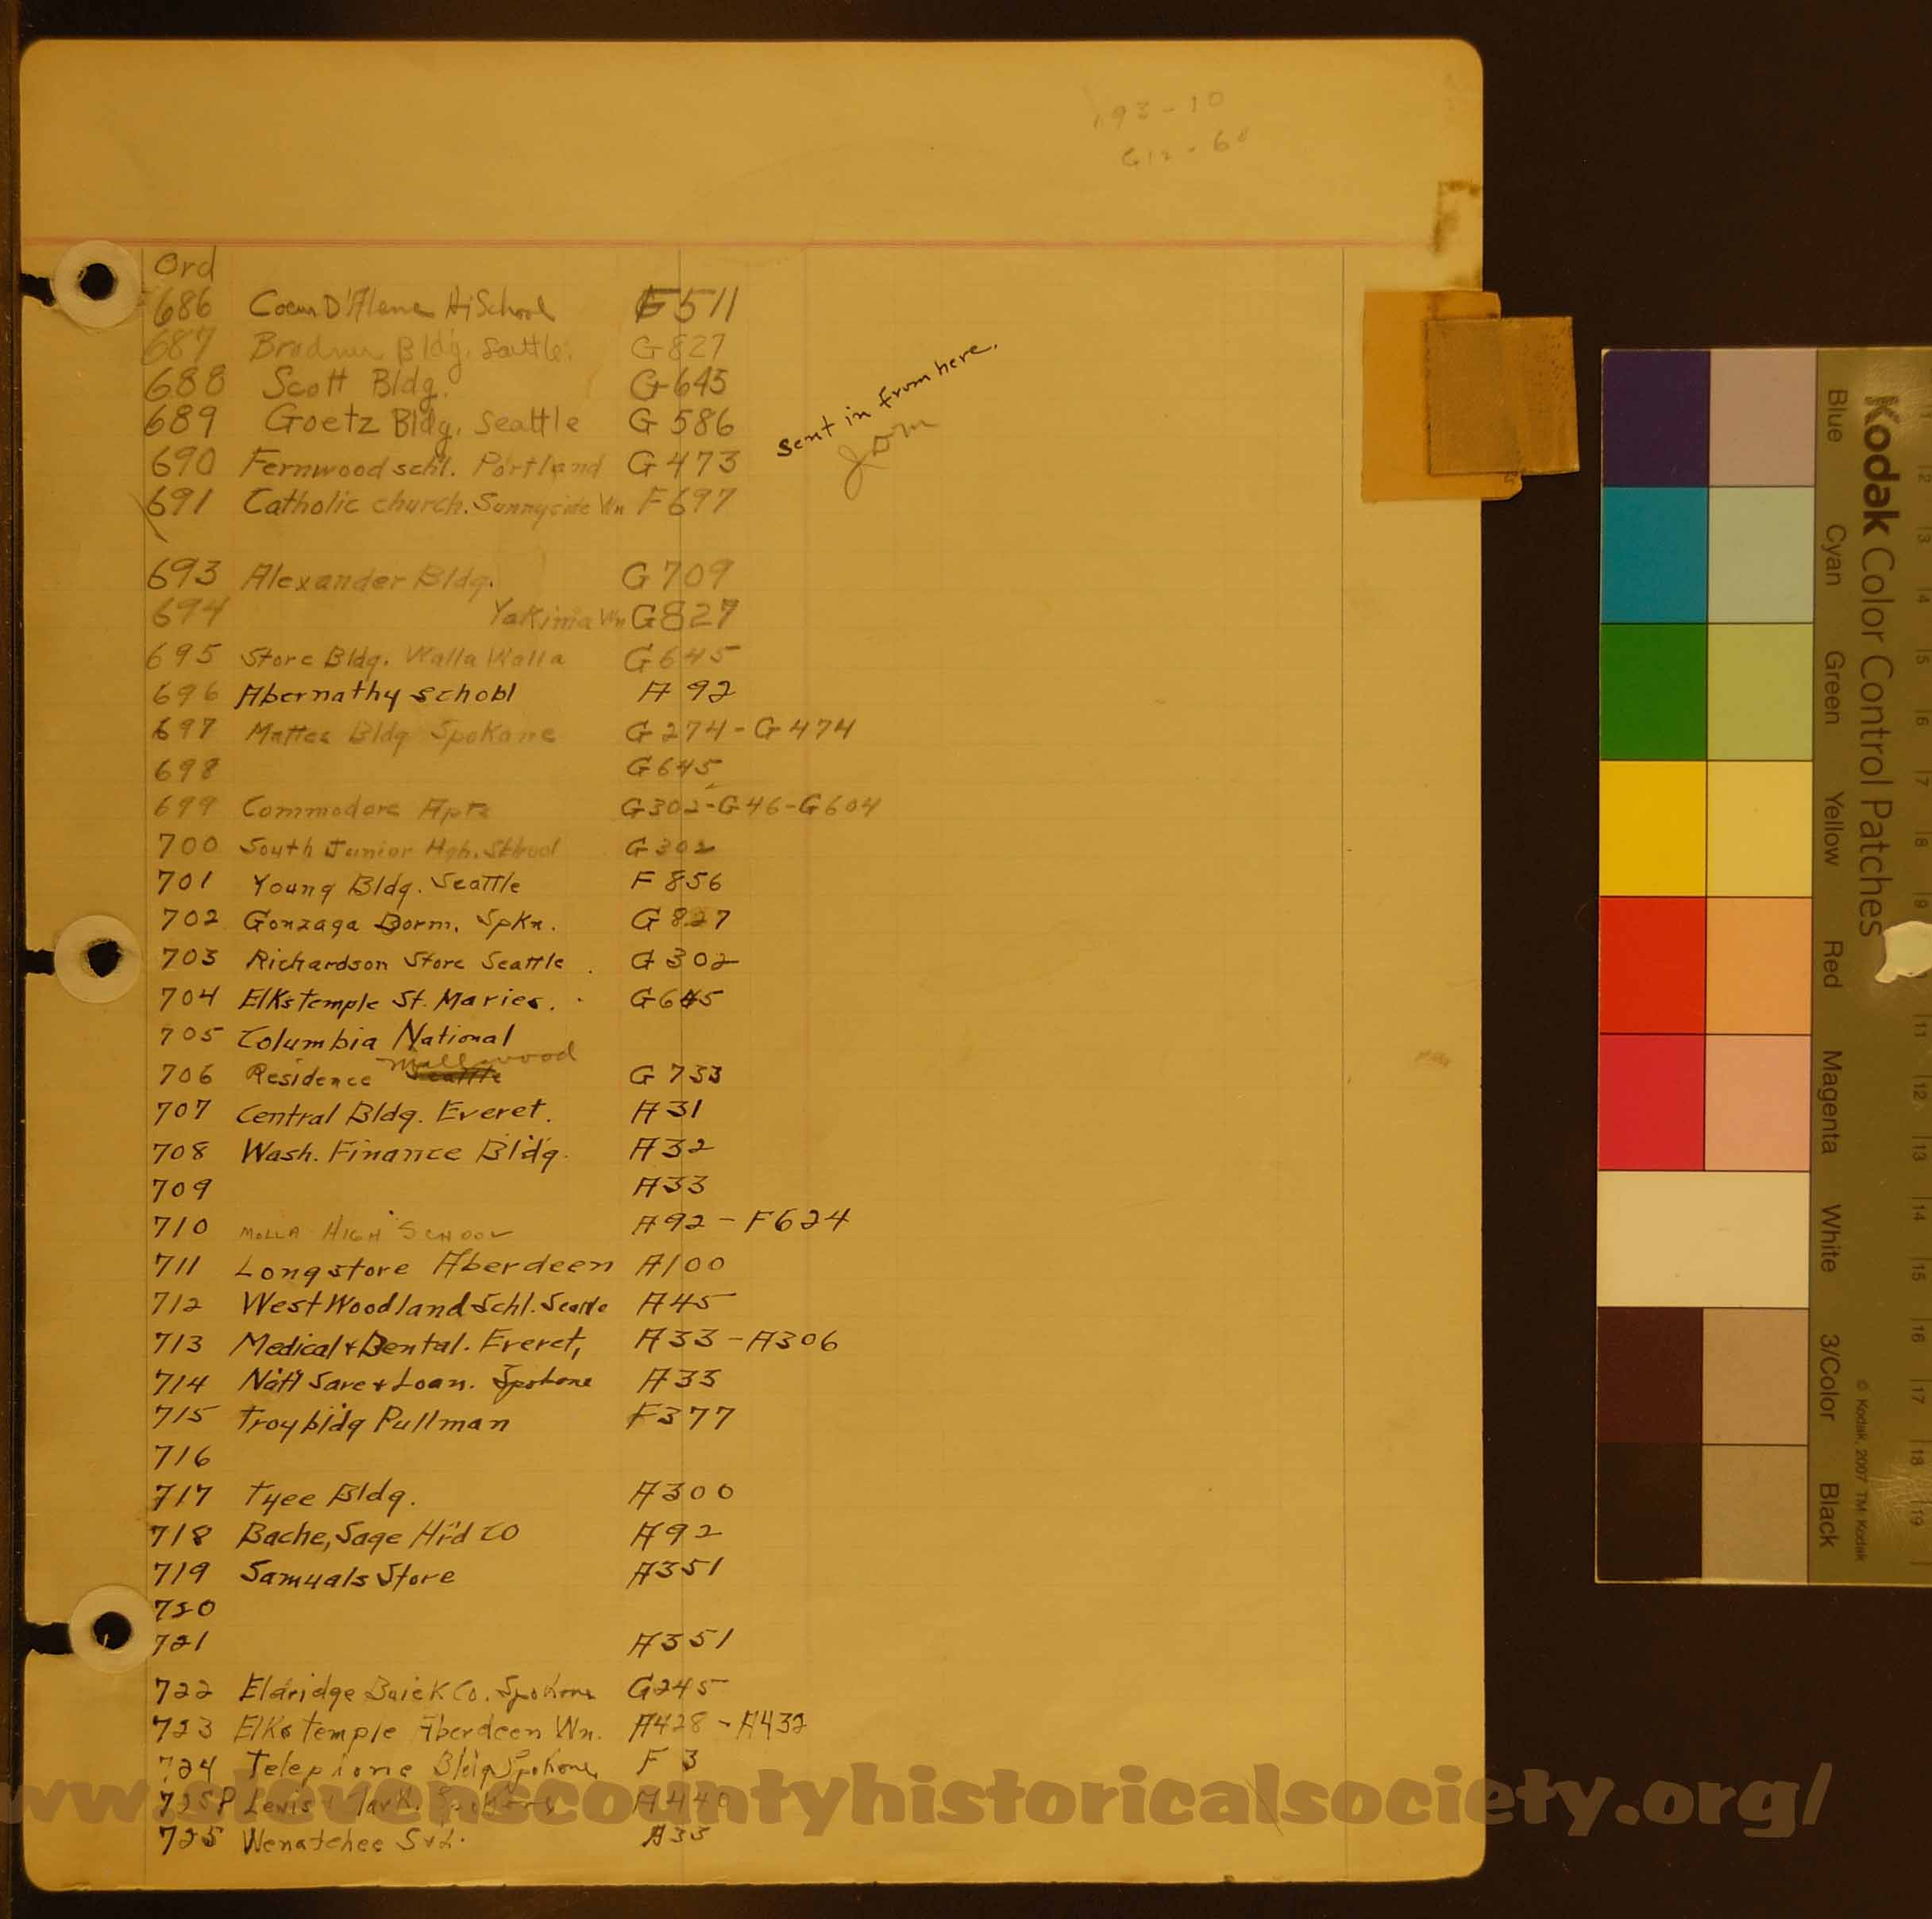 193-10
G12-60
Ord
686 Coeur D'Alene Hi School G511
687 Bldg. Seattle. G827
688 Scott Bldg. G645
689 Goetz Bldg. Seattle G586
sent in from here.
690 Fernwood schl. Portland G473
691 Catholic church. Sunnyside Wn F697
693 Alexander Bldg. G709
694 Yakima Wn G827
695 Store Bldg. Walla Walla G645
696 Abernathy school A92
697 Mattes Bldg Spokane G274-G474
698 G645
699 Commodore Apts G302-G46-G604
700 South Junior Hgh. School G302
701 Young Bldg. Seattle F856
702 Gonzaga Dorm. Spkn. G827
703 Richardson Store Seattle. G302
704 Elks temple St. Maries. G645
705 Columbia National
706 Residence Seattle Millwood G733
707 Central Bldg. Everet. A31
708 Wash. Finance Bldg. A32
709 A33
710 MOLLA HIGH SCHOOL A92-F624
711 Longstore Aberdeen A100
712 West Woodland Schl. Seattle A45
713 Medical & Dental. Everet, A33-A306
714 Nat'l Save & Loan. Spokane A33
715 Troy bldg Pullman F377
716
717 Tyee Bldg. A300
718 Bache, Sage H'rd CO A92
719 Samuals Store A351
720
721 A351
722 Eldridge Buick Co. Spokane G245
723 Elks temple Aberdeen Wn. A428-A432
724 Telephone Bldg Spokane F3
725P Lewis & Clark. Spokane A440
725 Wenatchee S&L. A33
www.stevenscountyhistoricalsociety.org/
Kodak Color Control Patches
Blue Cyan Green Yellow Red Magenta White 3/Color Black
© Kodak, 2007 TM Kodak
2 3 4 5 6 7 8 9 11 12 13 14 15 16 17 18 19